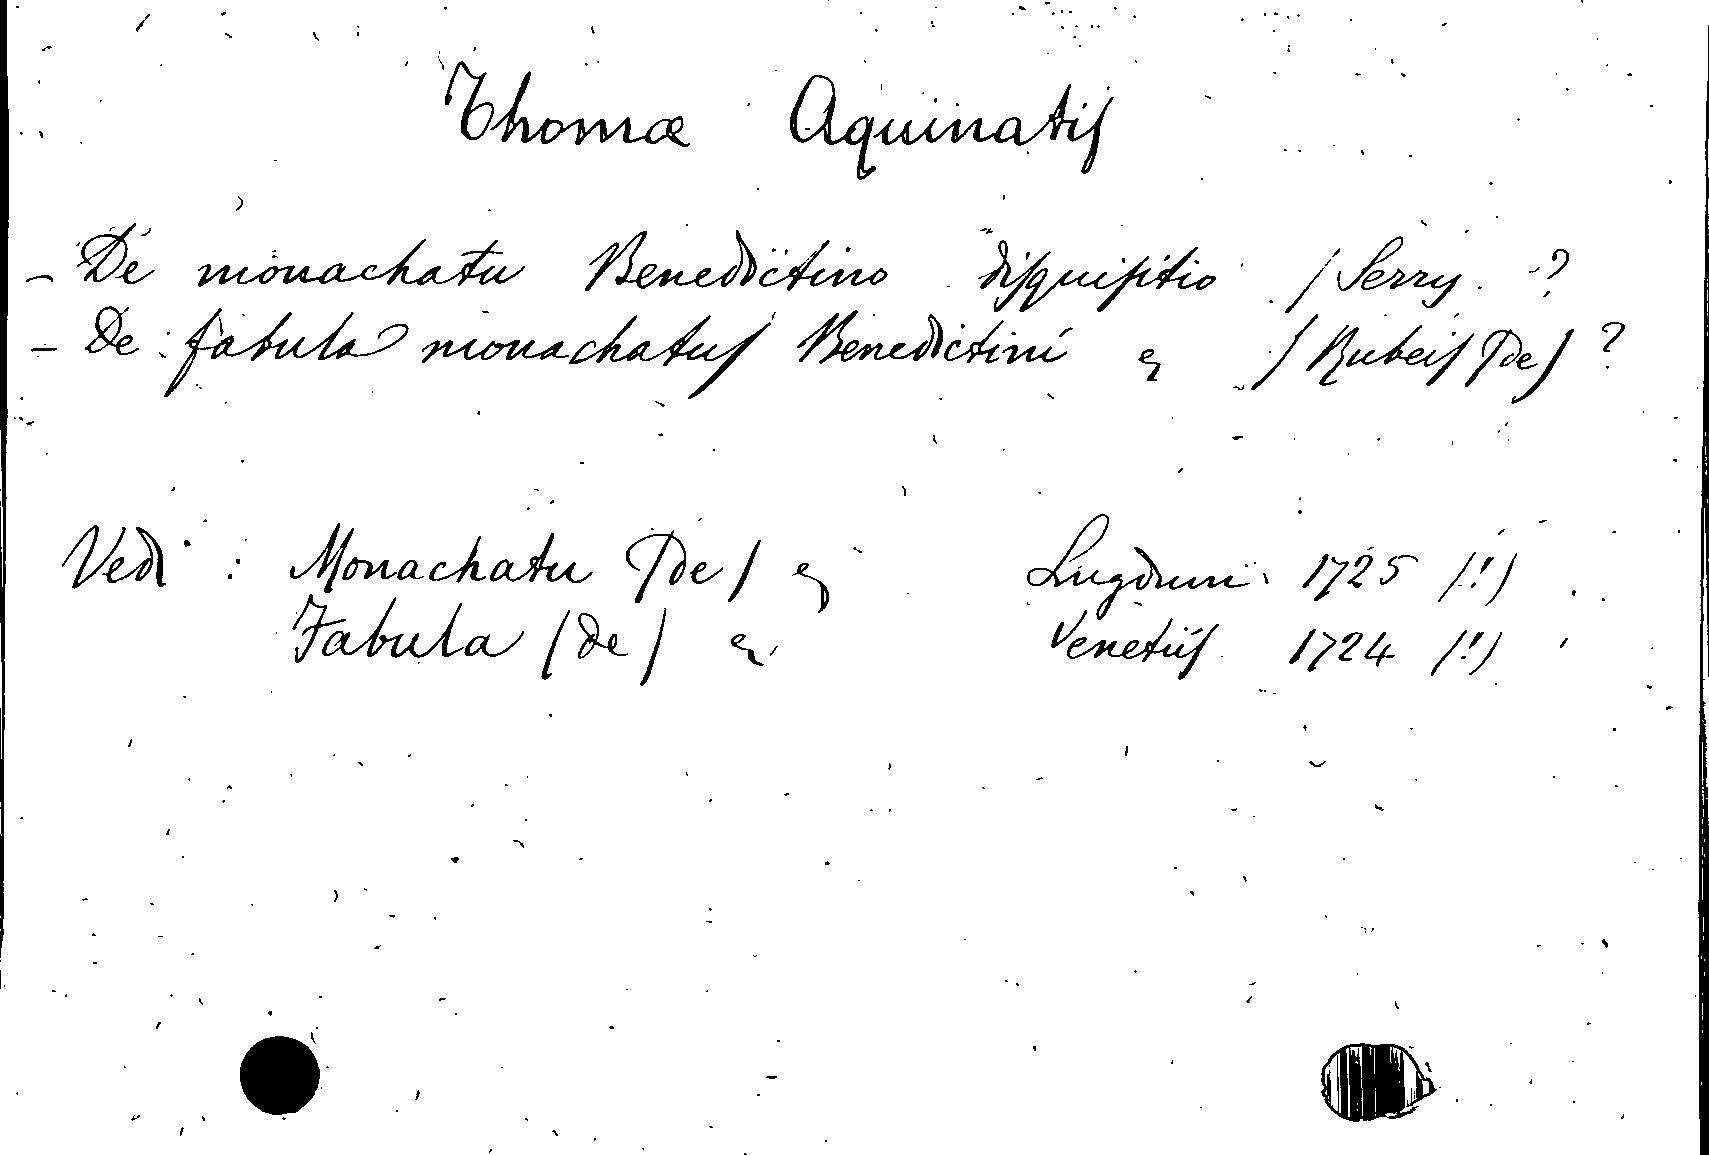 Thomæ Aquinatis
- De monachatu Benedictino disquisitio (Serry ?
- De fabula monachatus Benedictini (Rubeis (De) ?
Vedi : Monachatu (De) Lugduni 1725 (!)
Fabula (De) Venetiis 1724 (!)